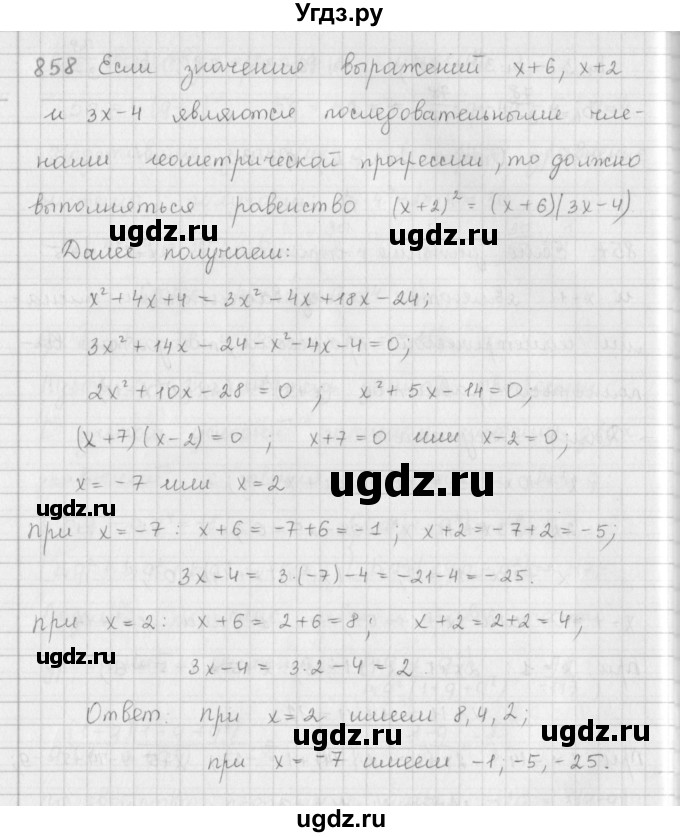 Угдз.ру
858 Если значения выражений x+6, x+2
и 3x-4 являются последовательными чле-
нами геометрической прогрессии, то должно
выполняться равенство (x+2)² = (x+6)(3x-4)
ugdz.ru ugdz.ru
Далее получаем:
x²+4x+4 = 3x²-4x+18x-24;
3x²+14x-24-x²-4x-4=0;
2x²+10x-28=0; x²+5x-14=0;
(x+7)(x-2)=0; x+7=0 или x-2=0;
x=-7 или x=2
ugdz.ru
ugdz.ru
при x=-7: x+6=-7+6=-1; x+2=-7+2=-5;
3x-4=3·(-7)-4=-21-4=-25.
при x=2: x+6=2+6=8; x+2=2+2=4;
ugdz.ru
3x-4=3·2-4=2
Ответ: при x=2 имеем 8,4,2;
ugdz.ru ugdz.ru
при x=-7 имеем -1; -5, -25.
ugdz.ru